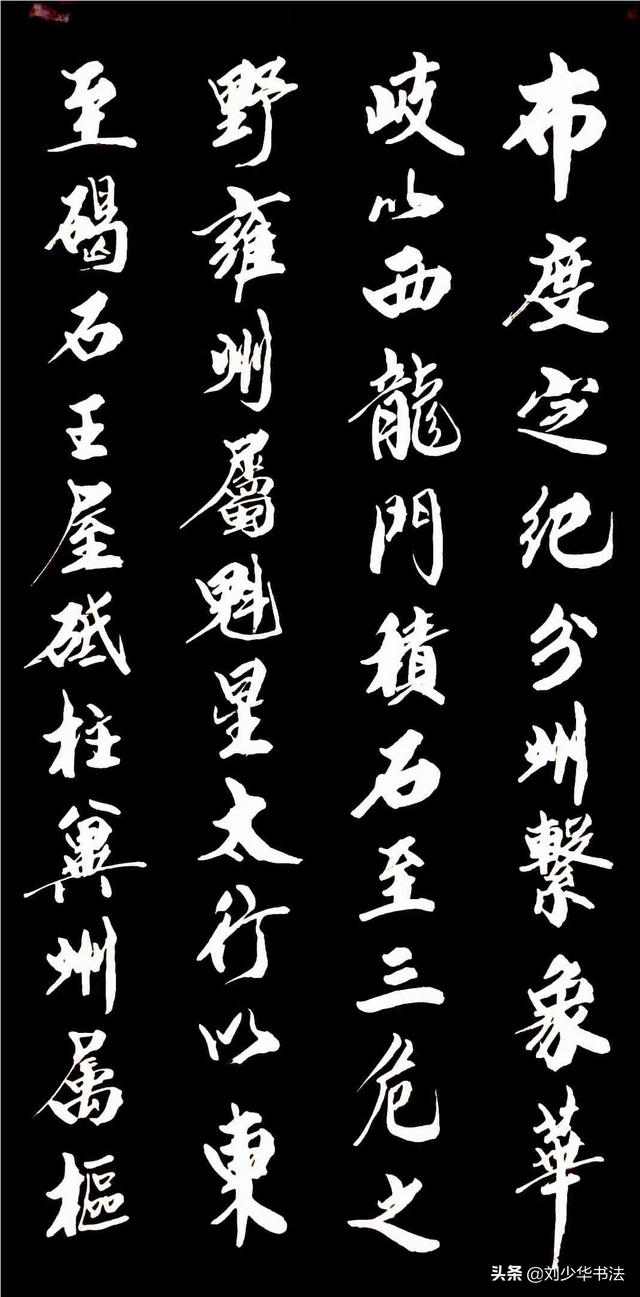 布度定紀分州繫象華
岐以西龍門積石至三危之
野雍州屬魁星太行以東
至碣石王屋砥柱冀州属樞
头条 @刘少华书法